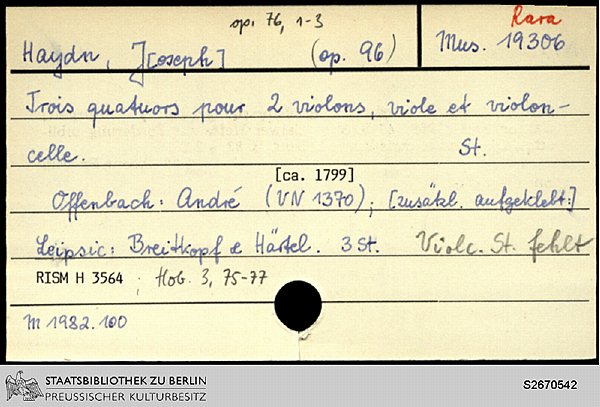 op. 76, 1-3
Rara
Haydn, J[oseph] (op. 96) Mus. 19306
Trois quatuors pour 2 violons, viole et violon-
celle. St.
[ca. 1799]
Offenbach: André (VN 1370); [zusätzl. aufgeklebt:]
Leipsic: Breitkopf & Härtel. 3 St. Violc. St. fehlt
RISM H 3564 ; Hob. 3, 75-77
M 1982.100
STAATSBIBLIOTHEK ZU BERLIN
PREUSSISCHER KULTURBESITZ
S2670542